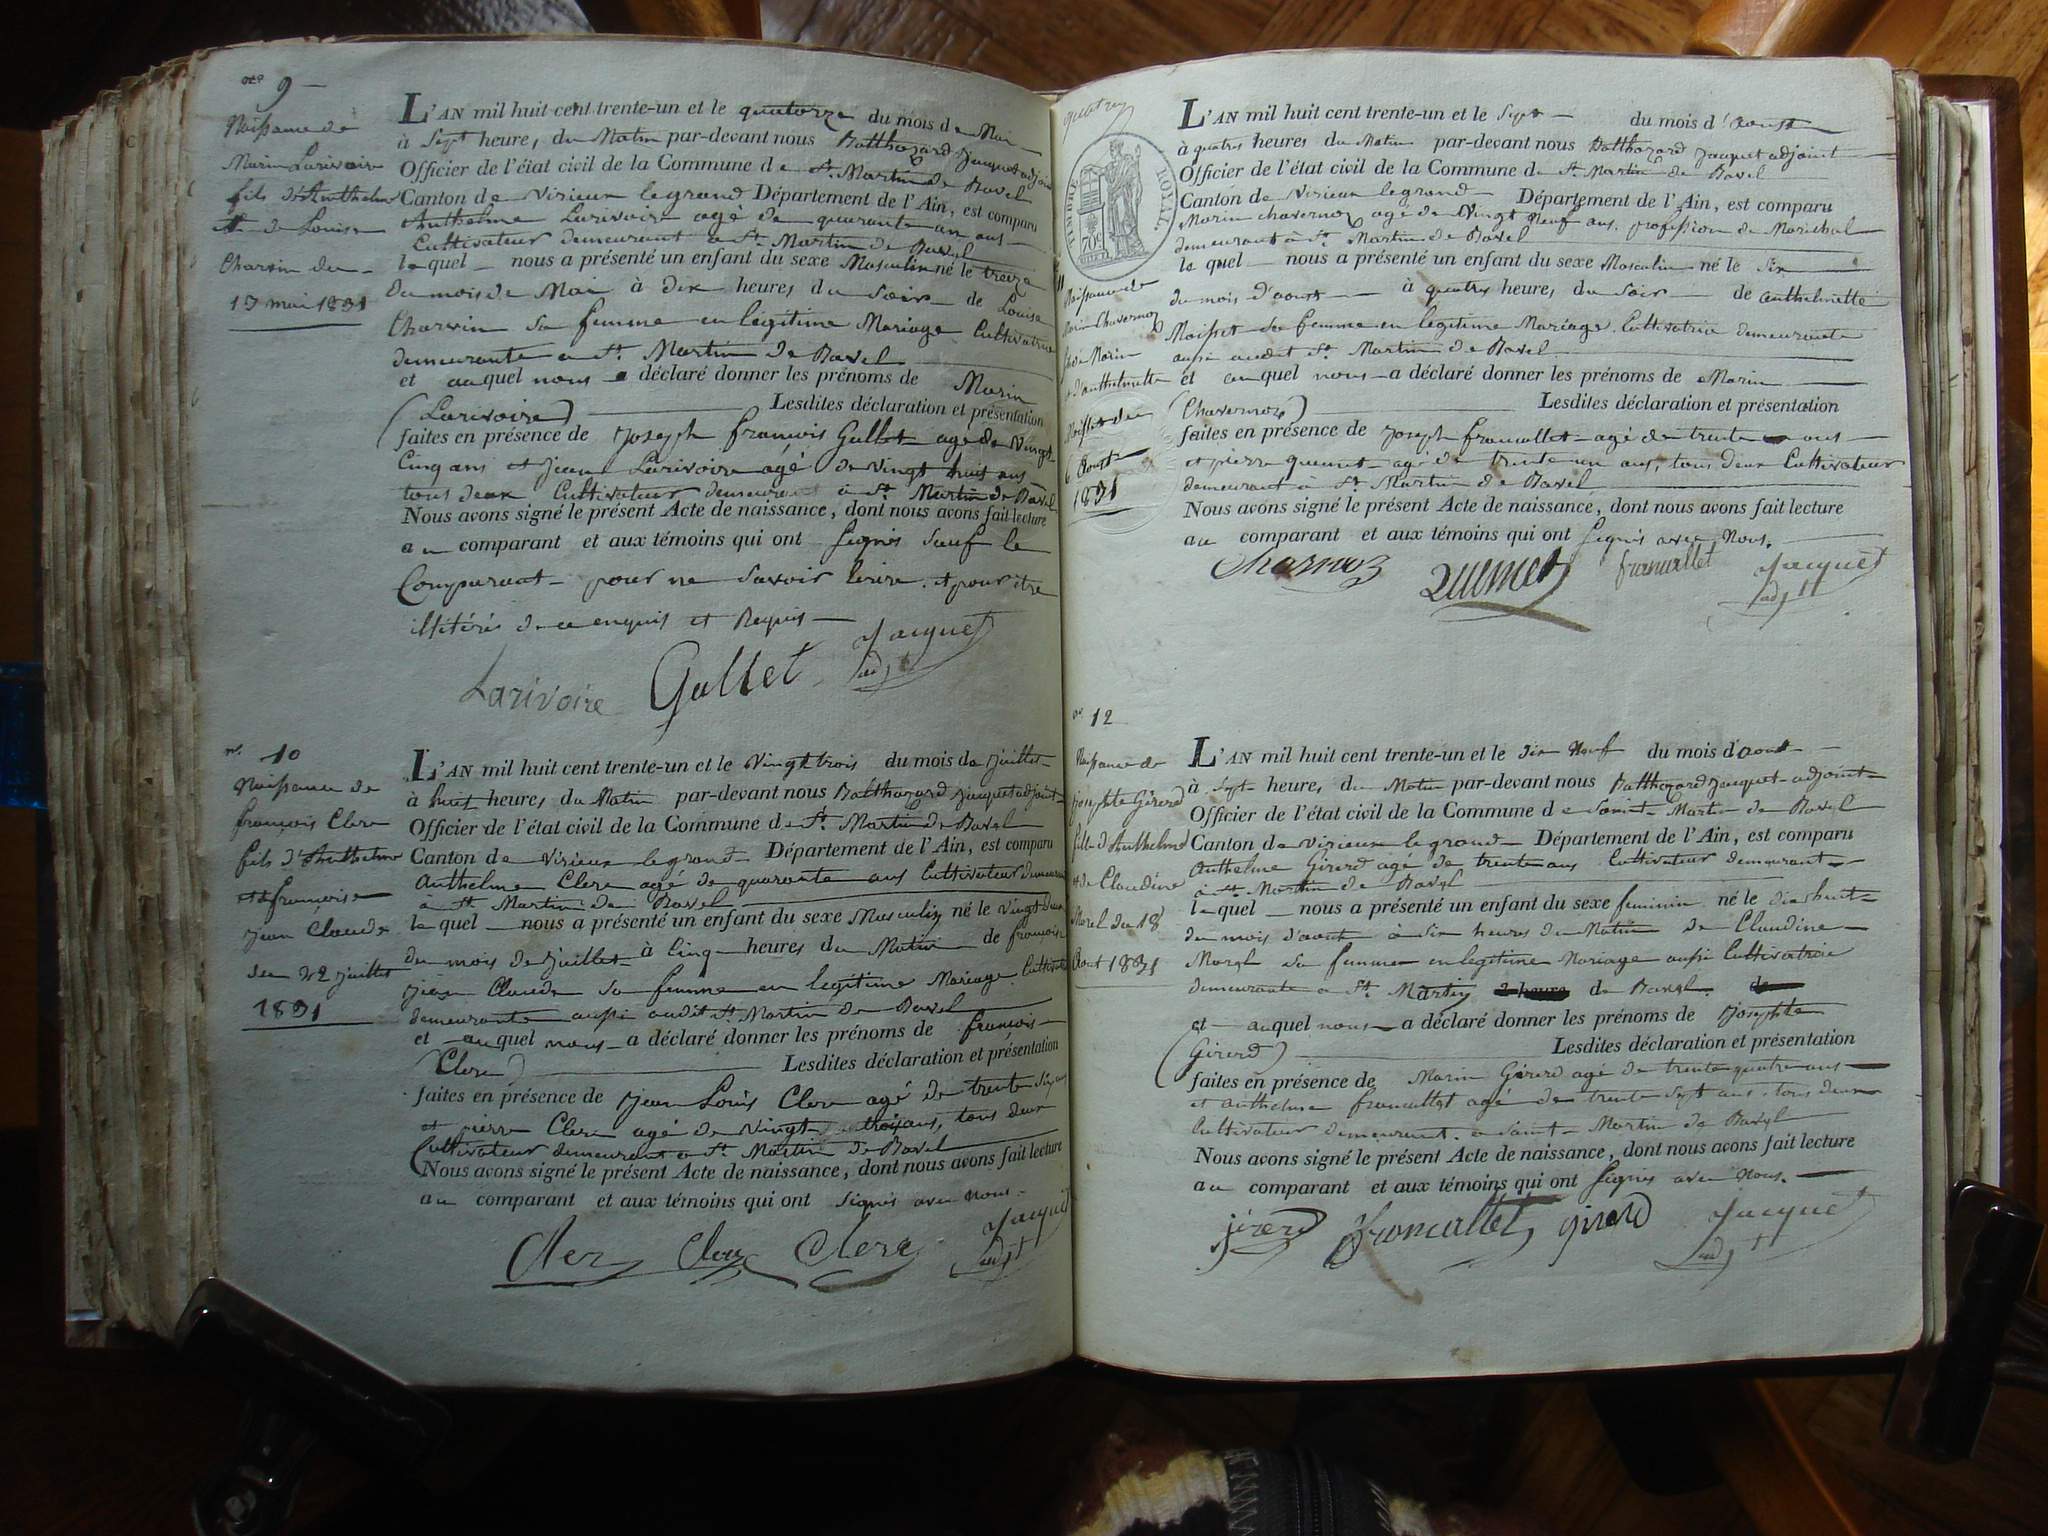 no 9 —
Naissance de
Marin Larivoire
fils d'Anthelme
et de Louise
Charvin du
13 mai 1831
L'AN mil huit cent trente-un et le quatorze du mois de Mai
à Sept heures, du Matin par-devant nous Balthazard Jacquet adjoint
Officier de l'état civil de la Commune de St Martin de Bavel
Canton de Virieux legrand Département de l'Ain, est comparu
Anthelme Larivoire agé de quarante un ans
Cultivateur demeurant à St Martin de Bavel
lequel nous a présenté un enfant du sexe Masculin né le treize
du mois de Mai à dix heures du Soir de Louise
Charvin sa femme en légitime Mariage Cultivatrice
demeurante a St Martin de Bavel
et auquel nous a déclaré donner les prénoms de Marin
(Larivoire) Lesdites déclaration et présentation
faites en présence de Joseph françois Gallet agé de Vingt
Cinq ans et Jean Larivoire agé de vingt huit ans
tous deux Cultivateur demeurant à St Martin de Bavel
Nous avons signé le présent Acte de naissance, dont nous avons fait lecture
au comparant et aux témoins qui ont Signés Sauf le
Comparant pour ne Savoir Ecrire et pour être
illitéré de ce enquis et Requis
Larivoire Gallet Jacquet
adjt
no 10
Naissance de
françois Clerc
fils d'Anthelme
et de françoise
jean Claude
du 22 juillet
1831
L'AN mil huit cent trente-un et le Vingt trois du mois de Juillet
à huit heures du Matin par-devant nous Balthazard Jacquet adjoint
Officier de l'état civil de la Commune de St Martin de Bavel
Canton de Virieux legrand Département de l'Ain, est comparu
Anthelme Clerc agé de quarante ans Cultivateur demeurant
a St Martin de Bavel
lequel nous a présenté un enfant du sexe Masculin né le Vingt deux
du mois de Juillet à Cinq heures du Matin de françoise
Jean Claude sa femme en légitime Mariage Cultivatrice
demeurante aussi audit St Martin de Bavel
et auquel nous a déclaré donner les prénoms de françois
(Clerc) Lesdites déclaration et présentation
faites en présence de Jean Louis Clerc agé de trente six ans
et pierre Clerc agé de Vingt trois ans, tous deux
Cultivateur demeurant a St Martin de Bavel
Nous avons signé le présent Acte de naissance, dont nous avons fait lecture
au comparant et aux témoins qui ont Signés avec Nous
Clerc Clerc Clerc Jacquet
adjt
TIMBRE ROYAL
70c
11
Naissance de
Marin Chavernoz
fils de Marin
et d'anthelmette
Moisset du
6 Aoust
1831
L'AN mil huit cent trente-un et le Sept du mois d'Aoust
à quatres heures du Matin par-devant nous Balthazard Jacquet adjoint
Officier de l'état civil de la Commune de St Martin de Bavel
Canton de Virieux legrand Département de l'Ain, est comparu
Marin chavernoz agé de Vingt Neuf ans, profession de Maréchal
demeurant à St Martin de Bavel
lequel nous a présenté un enfant du sexe Masculin né le Six
du mois d'aoust à quatres heures du Soir de anthelmette
Moisset sa femme en légitime Mariage Cultivatrice demeurante
aussi audit St Martin de Bavel
et auquel nous a déclaré donner les prénoms de Marin
(Chavernoz) Lesdites déclaration et présentation
faites en présence de Joseph francallet agé de trente ans
et pierre quemet agé de trente un ans, tous deux Cultivateur
demeurant à St Martin de Bavel
Nous avons signé le présent Acte de naissance, dont nous avons fait lecture
au comparant et aux témoins qui ont Signés avec Nous.
Charnoz Quemet francallet Jacquet
adjt
no 12
Naissance de
josephte Girerd
fille d'Anthelme
et de Claudine
Morel du 18
Aout 1831
L'AN mil huit cent trente-un et le dix Neuf du mois d'aoust
à Sept heures, du Matin par-devant nous Balthazard Jacquet adjoint
Officier de l'état civil de la Commune de Saint Martin de Bavel
Canton de Virieux le grand Département de l'Ain, est comparu
Anthelme Girerd agé de trente ans Cultivateur demeurant
à St Martin de Bavel
lequel nous a présenté un enfant du sexe feminin né le dix huit
du mois d'aout à Six heures du Matin de Claudine
Morel sa femme en légitime Mariage aussi Cultivatrice
demeurante a St Martin de Bavel.
et auquel nous a déclaré donner les prénoms de Josephte
(Girerd) Lesdites déclaration et présentation
faites en présence de Marin Girerd agé de trente quatre ans
et anthelme francallet agé de trente Sept ans tous deux
Cultivateur demeurant a Saint Martin de Bavel
Nous avons signé le présent Acte de naissance, dont nous avons fait lecture
au comparant et aux témoins qui ont Signés avec Nous.
jirerd francallet girerd Jacquet
adjt